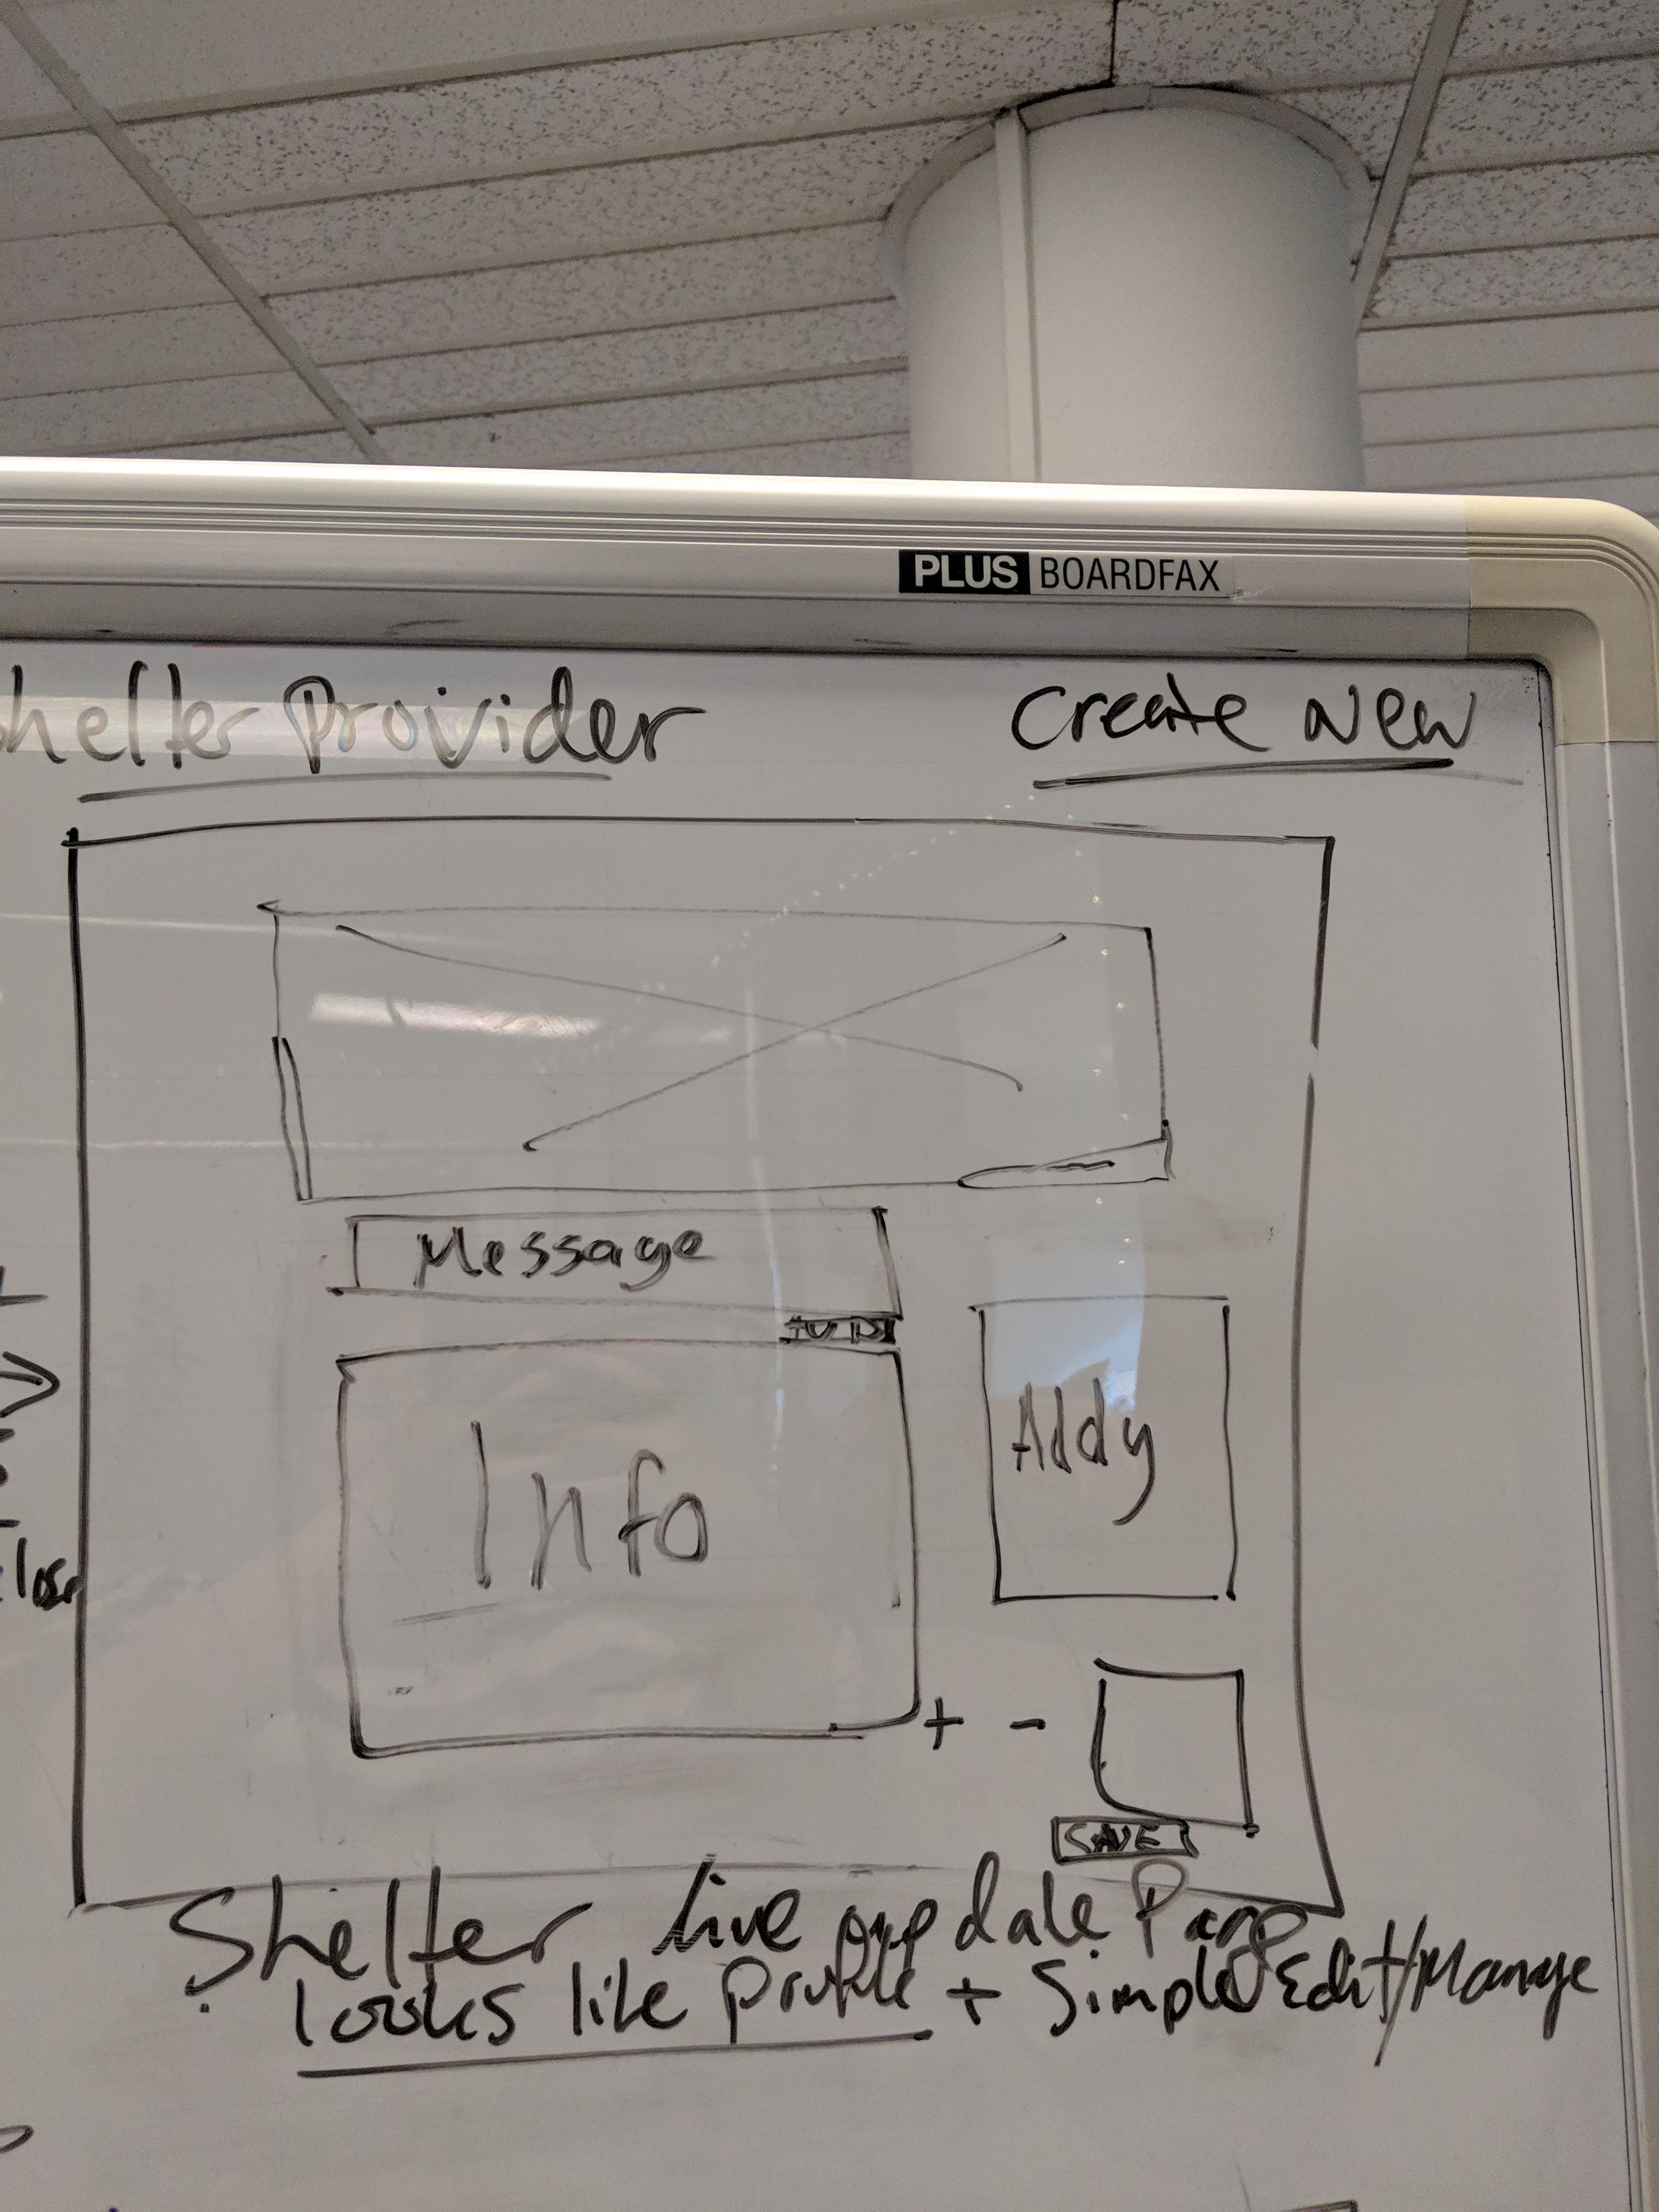 PLUS BOARDFAX
Shelter Provider
Create New
Message
Info
Addy
+ -
SAVE
Shelter live update Page
looks like profile + Simple Edit/Manage